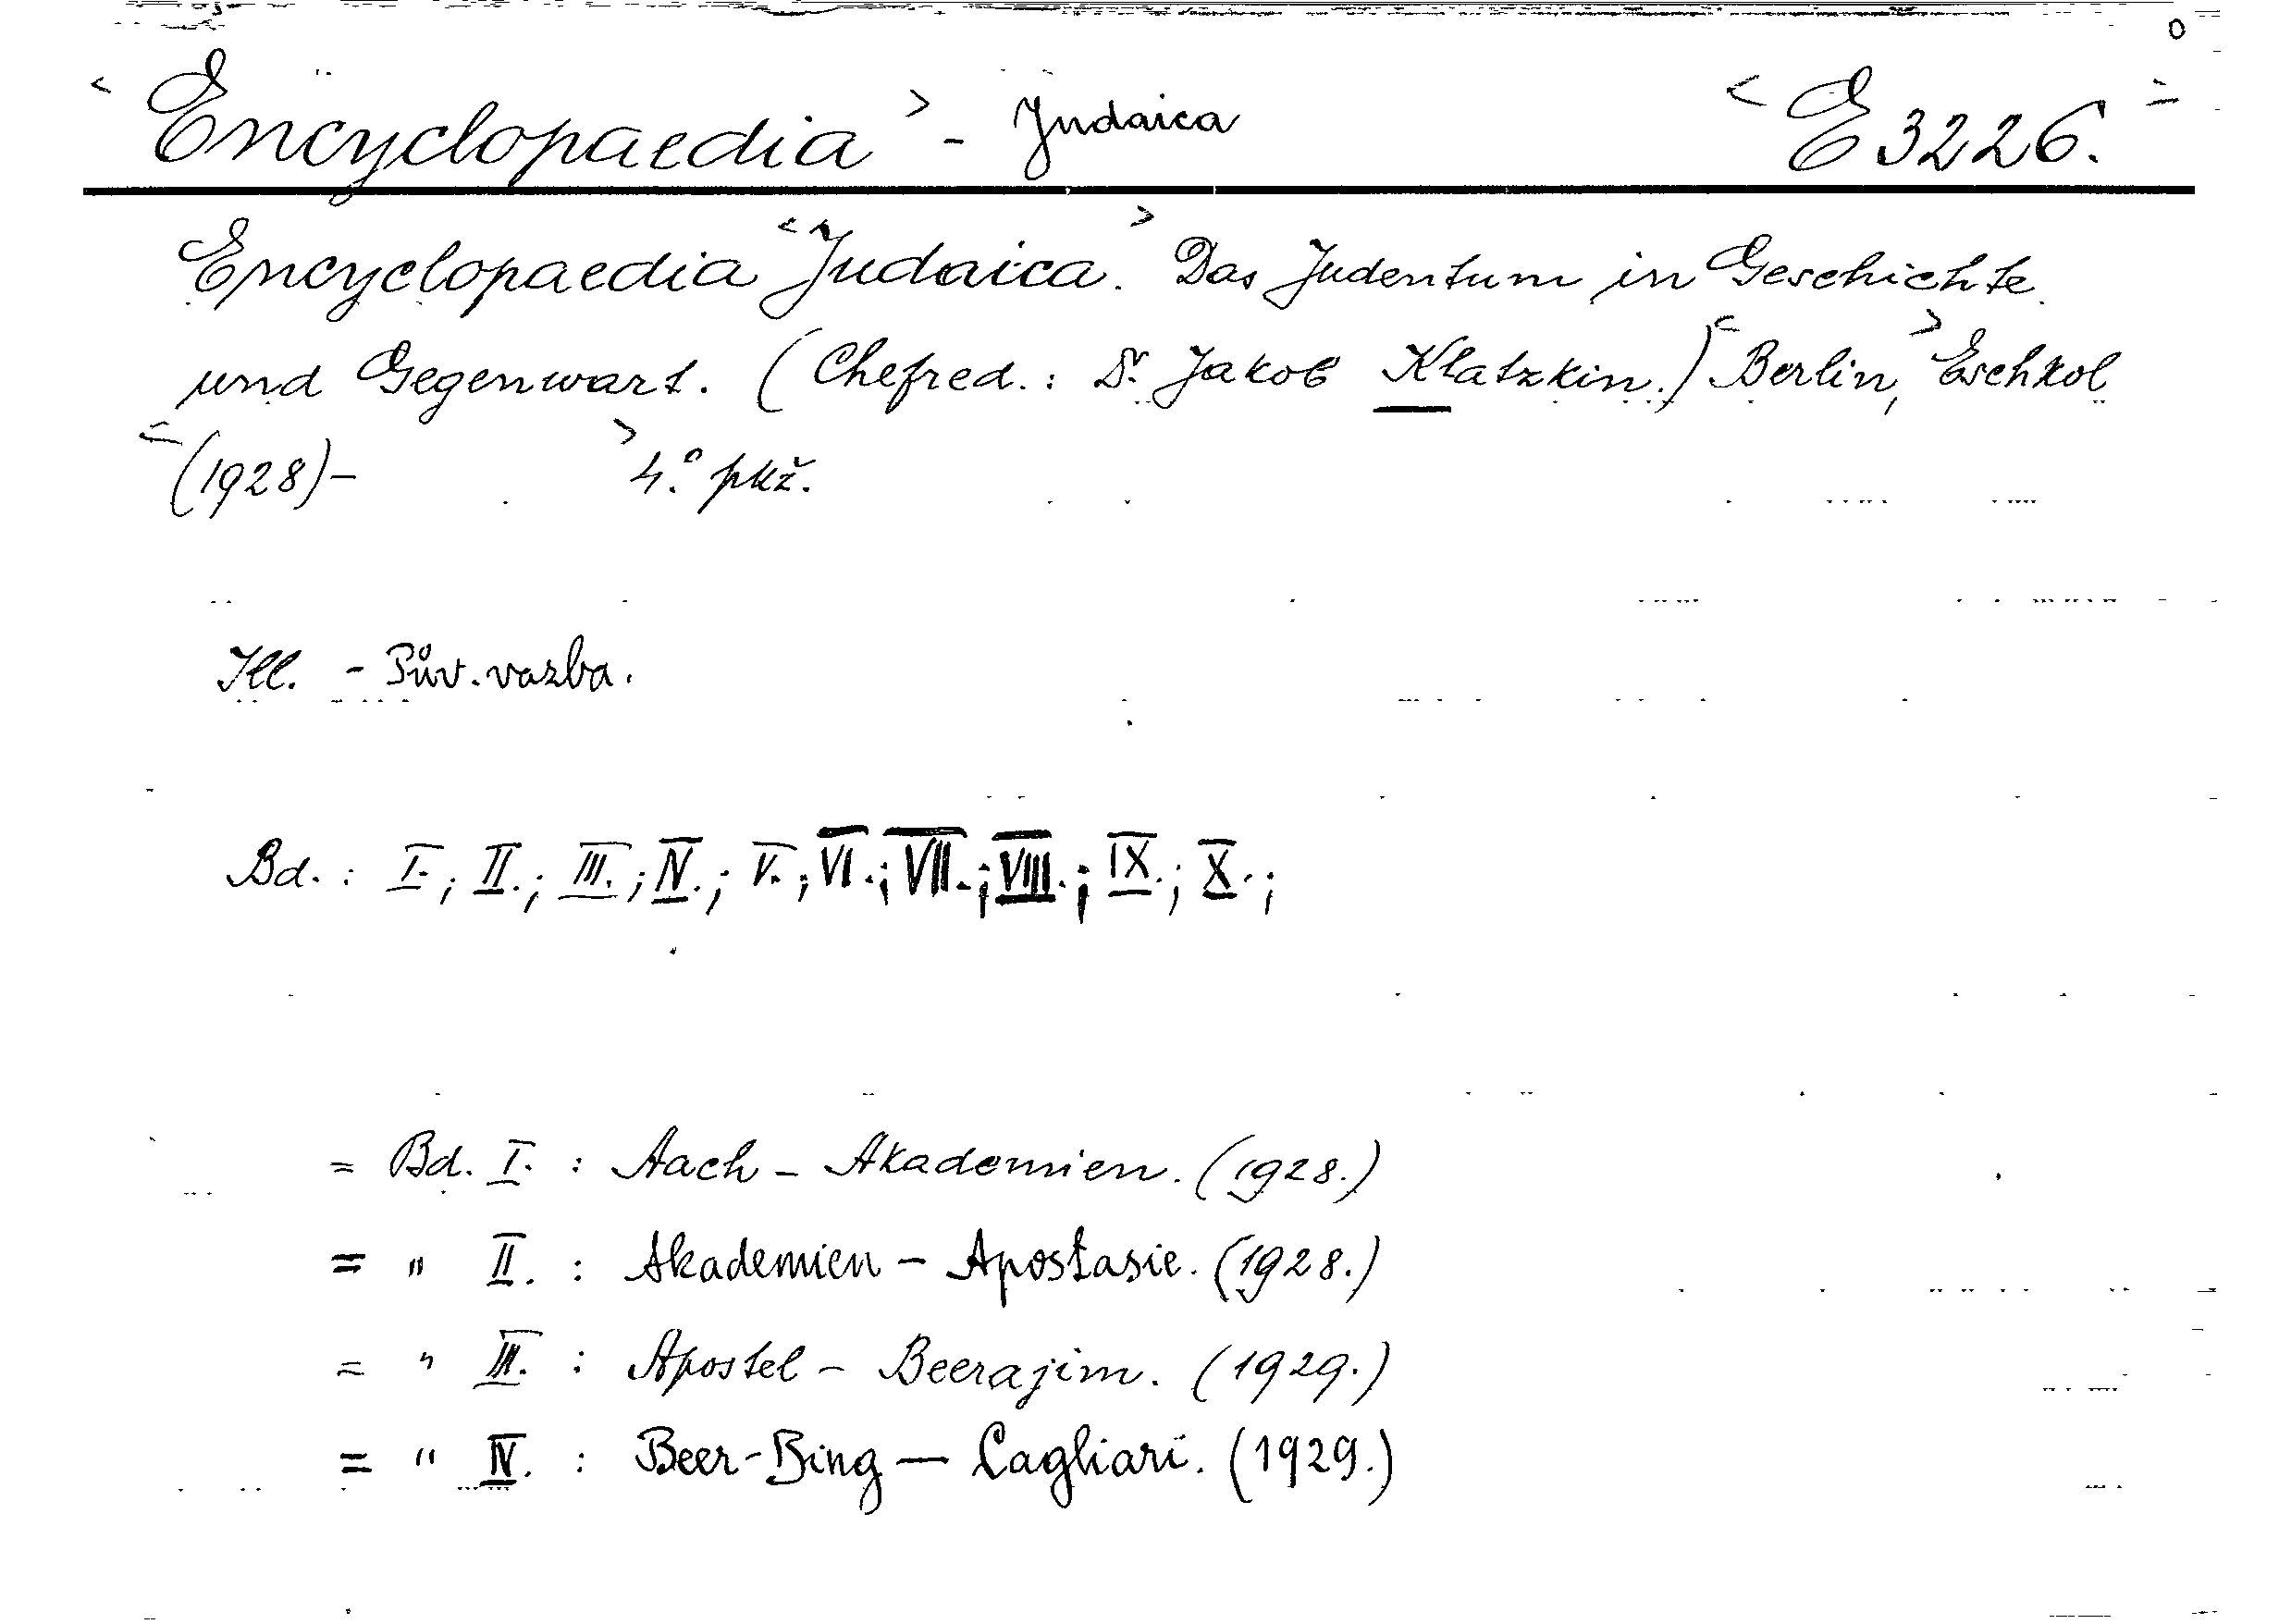 < Encyclopaedia > - Judaica < E 3226. >
Encyclopaedia < Judaica. > Das Judentum in Geschichte
und Gegenwart. (Chefred.: Dr. Jakob Klatzkin.) < Berlin, > Eschkol
< (1928)- > 4.° pkž.
Ill. - Pův. vazba.
Bd.: I.; II.; III.; IV.; V.; VI.; VII.; VIII.; IX.; X.;
= Bd. I. : Aach - Akademien. (1928.)
= " II. : Akademien - Apostasie. (1928.)
= " III. : Apostel - Beerajim. (1929.)
= " IV. : Beer-Bing — Cagliari. (1929.)